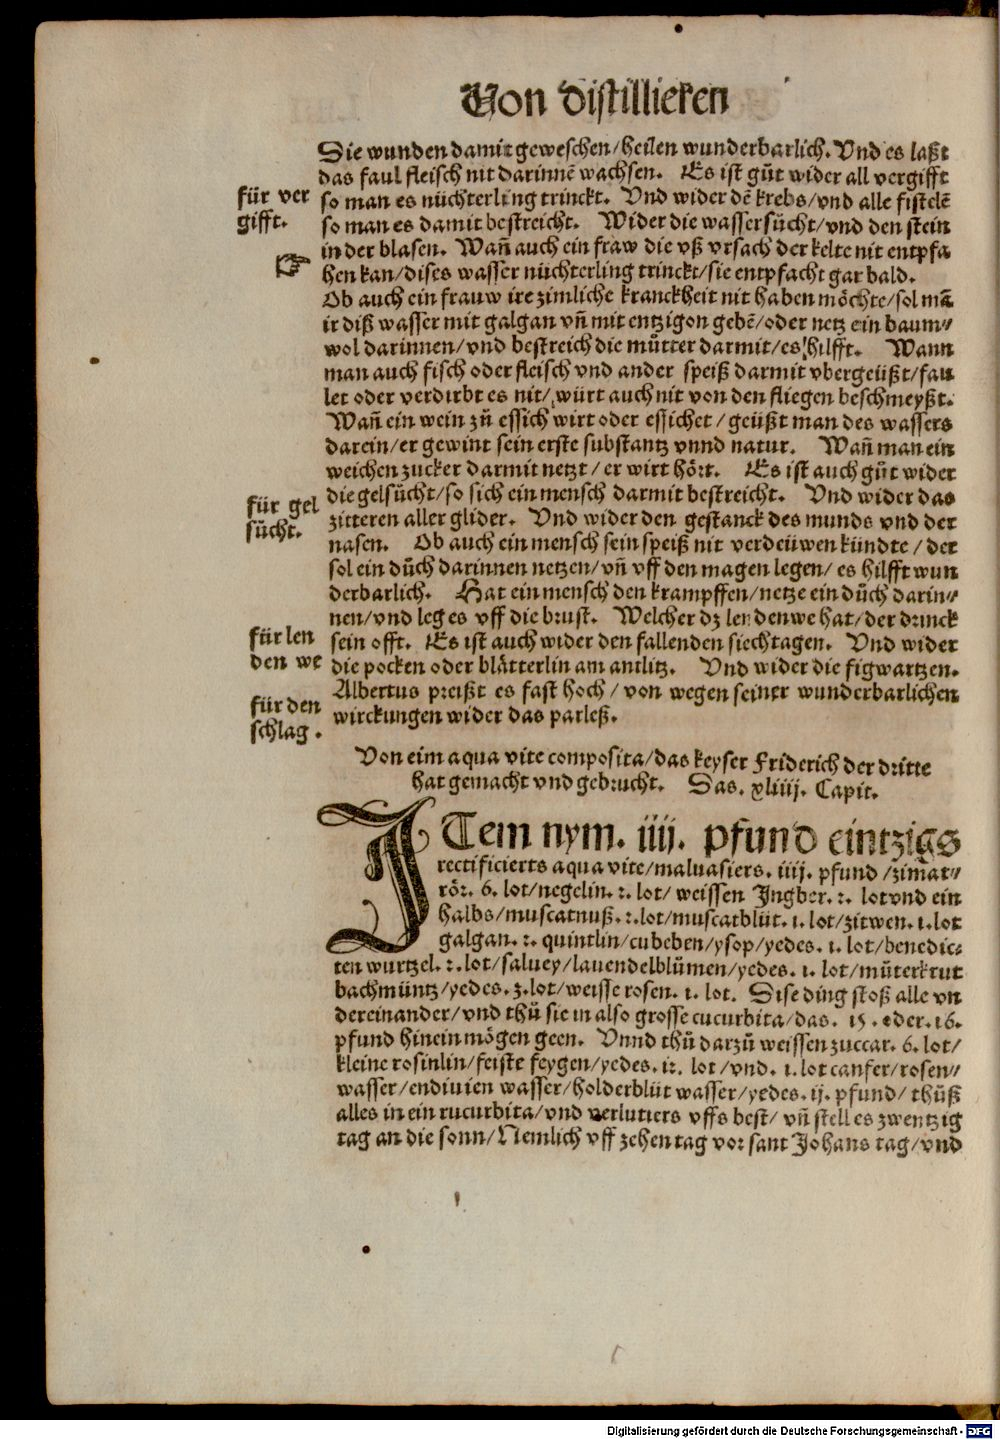 Von distillieren
Sie wunden damit geweschen/heilen wunderbarlich. Vnd es laßt
das faul fleisch nit darinnē wachsen. Es ist gůt wider all vergifft
für ver
gifft.
so man es nüchterling trinckt. Vnd wider dē krebs/vnd alle fistelē
so man es damit bestreicht. Wider die wassersücht/vnd den stein
in der blasen. Wañ auch ein fraw die vß vrsach der kelte nit entpfa
hen kan/dises wasser nüchterling trinckt/sie entpfacht gar bald.
Ob auch ein frauw ire zimliche kranckheit nit haben möchte/sol mā
ir diß wasser mit galgan vñ mit entzigon gebē/oder netz ein baum⸗
wol darinnen/vnd bestreich die můtter darmit/es hilfft. Wann
man auch fisch oder fleisch vnd ander speiß darmit vbergeüßt/fau
let oder verdirbt es nit/würt auch nit von den fliegen beschmeyßt.
Wañ ein wein zů essich wirt oder essichet/geüßt man des wassers
darein/er gewint sein erste substantz vnnd natur. Wañ man ein
weichen zucker darmit netzt/er wirt hört. Es ist auch gůt wider
für gel
sücht.
die gelsücht/so sich ein mensch darmit bestreicht. Vnd wider das
zitteren aller glider. Vnd wider den gestanck des munds vnd der
nasen. Ob auch ein mensch sein speiß nit verdeüwen kündte/der
sol ein důch darinnen netzen/vñ vff den magen legen/es hilfft wun
derbarlich. Hat ein mensch den krampffen/netze ein důch darin⸗
nen/vnd leg es vff die brust. Welcher dz lendenwe hat/der drinck
für len
den we
sein offt. Es ist auch wider den fallenden siechtagen. Vnd wider
die pocken oder blätterlin am antlitz. Vnd wider die figwartzen.
für den
schlag.
Albertus preißt es fast hoch/von wegen seiner wunderbarlichen
wirckungen wider das parleß.
Von eim aqua vite composita/das keyser Friderich der dritte
hat gemacht vnd gebrucht. Das. xliiij. Capit.
ITem nym. iiij. pfund eintzigs
rectificierts aqua vite/maluasiers. iiij. pfund/zimat⸗
rör. 6. lot/negelin. 2. lot/weissen Ingber. 2. lot vnd ein
halbs/muscatnuß. 2. lot/muscatblüt. 1. lot/zitwen. 1. lot
galgan. 2. quintlin/cubeben/ysop/yedes. 1. lot/benedic⸗
ten wurtzel. 2. lot/saluey/lauendelblůmen/yedes. 1. lot/můterkrut
bachmüntz/yedes. 3. lot/weisse rosen. 1. lot. Dise ding stoß alle vn
dereinander/vnd thů sie in also grosse cucurbita/das. 15. oder. 16.
pfund hinein mögen geen. Vnnd thů darzů weissen zuccar. 6. lot/
kleine rosinlin/feiste feygen/yedes. 12. lot/vnd. 1. lot canfer/rosen⸗
wasser/endiuien wasser/holderblüt wasser/yedes. ij. pfund/thůß
alles in ein rucurbita/vnd verlutiers vffs best/vñ stell es zwentzig
tag an die sonn/Nemlich vff zehen tag vor sant Johans tag/vnd
Digitalisierung gefördert durch die Deutsche Forschungsgemeinschaft - DFG